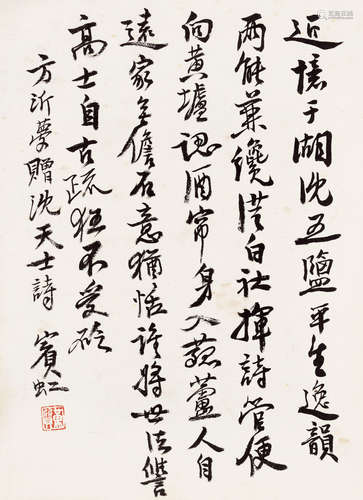 近憶于湖沈五鹽平生逸韻
兩能兼纔從白社揮詩管便
向黃壚認酒帘身入菰蘆人自
遠家無儋石意猶恬誰將世法讐
高士自古疏狂不受砭
方沂夢贈沈天士詩 賓虹